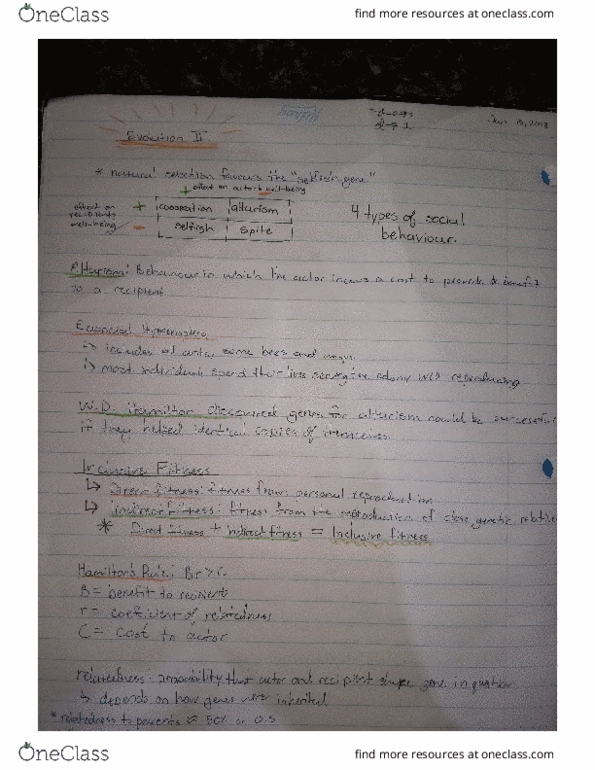 OneClass
find more resources at oneclass.com
Jan 2018
Evolution II
* natural selection favours the "selfish gene"
+ effect on actor's well-being -
effect on recipients well-being
+ cooperation altruism
- selfish spite
4 types of social
behaviour.
Altruism: Behaviour in which the actor incurs a cost to provide a benefit
to a recipient
Eusocial Hymenoptera
↳ includes all ants, some bees and wasps
↳ most individuals spend their lives serving the colony w/o reproducing
W.D. Hamilton discovered genes for altruism could be successful
if they helped identical copies of themselves.
Inclusive Fitness
↳ Direct fitness: fitness from personal reproduction
↳ indirect fitness: fitness from the reproduction of close genetic relative
* Direct fitness + indirect fitness = Inclusive fitness
Hamilton's Rule: Br > C
B = benefit to recipient
r = coefficient of relatedness
C = cost to actor
relatedness: probability that actor and recipient share gene in question
↳ depends on how genes were inherited
* relatedness to parents ≈ 50% or 0.5
OneClass
find more resources at oneclass.com